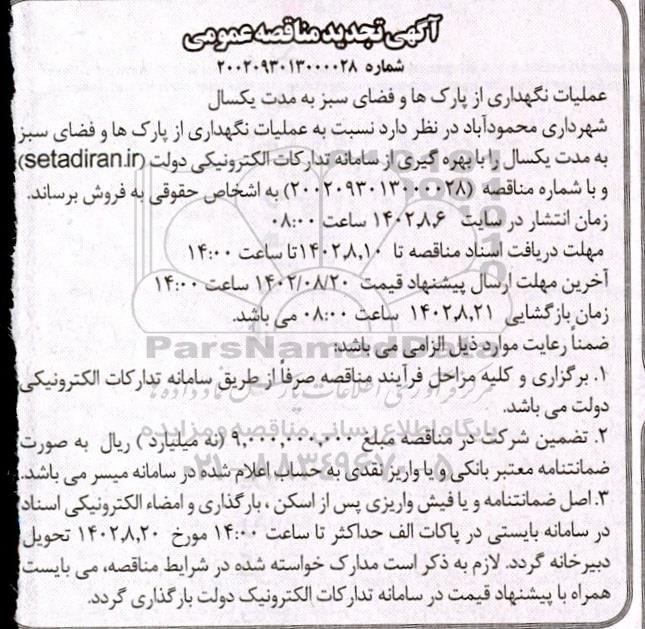 آگهی تجدید مناقصه عمومی
شماره ۲۰۰۲۰۹۳۰۱۳۰۰۰۰۲۸
عملیات نگهداری از پارک ها و فضای سبز به مدت یکسال
شهرداری محمودآباد در نظر دارد نسبت به عملیات نگهداری از پارک ها و فضای سبز
به مدت یکسال را با بهره گیری از سامانه تدارکات الکترونیکی دولت (setadiran.ir)
و با شماره مناقصه (۲۰۰۲۰۹۳۰۱۳۰۰۰۰۲۸) به اشخاص حقوقی به فروش برساند.
زمان انتشار در سایت ۱۴۰۲،۸،۶ ساعت ۰۸:۰۰
مهلت دریافت اسناد مناقصه تا ۱۴۰۲،۸،۱۰ تا ساعت ۱۴:۰۰
آخرین مهلت ارسال پیشنهاد قیمت ۱۴۰۲/۰۸/۲۰ ساعت ۱۴:۰۰
زمان بازگشایی ۱۴۰۲،۸،۲۱ ساعت ۰۸:۰۰ می باشد.
ضمناً رعایت موارد ذیل الزامی می باشد:
ParsNamadData
۱. برگزاری و کلیه مراحل فرآیند مناقصه صرفاً از طریق سامانه تدارکات الکترونیکی
دولت می باشد.
پایگاه اطلاع رسانی مناقصه و مزایده
۲. تضمین شرکت در مناقصه مبلغ ۹,۰۰۰,۰۰۰,۰۰۰ (نه میلیارد) ریال به صورت
ضمانتنامه معتبر بانکی و یا واریز نقدی به حساب اعلام شده در سامانه میسر می باشد.
۳. اصل ضمانتنامه و یا فیش واریزی پس از اسکن، بارگذاری و امضاء الکترونیکی اسناد
در سامانه بایستی در پاکات الف حداکثر تا ساعت ۱۴:۰۰ مورخ ۱۴۰۲،۸،۲۰ تحویل
دبیرخانه گردد. لازم به ذکر است مدارک خواسته شده در شرایط مناقصه، می بایست
همراه با پیشنهاد قیمت در سامانه تدارکات الکترونیک دولت بارگذاری گردد.